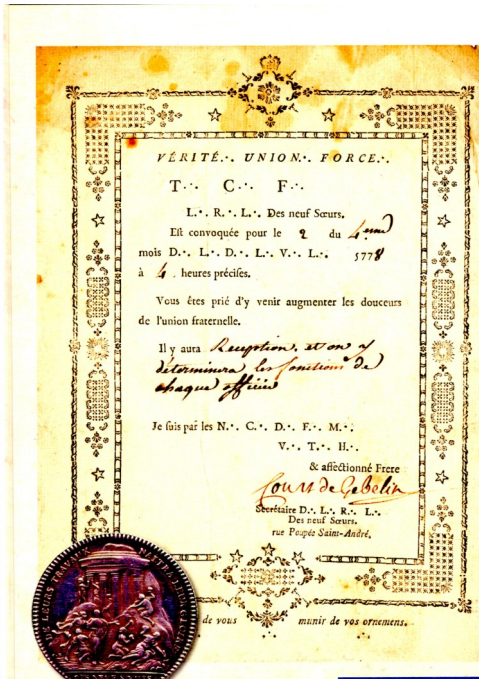 VÉRITÉ.·. UNION.·. FORCE.·.
T.·. C.·. F.·.
L.·. R.·. L.·. Des neuf Sœurs.
Est convoquée pour le 2 du 4eme
mois D.·. L.·. D.·. L.·. V.·. L.·. 5778
à 4 heures précises.
Vous êtes prié d'y venir augmenter les douceurs
de l'union fraternelle.
Il y aura Reception, et on y
déterminera les fonctions de
chaque officier
Je suis par les N.·. C.·. D.·. F.·. M.·.
V.·. T.·. H.·.
& afféctionné Frere
Court de Gebelin
Secrétaire D.·. L.·. R.·. L.·.
Des neuf Sœurs.
rue Poupée Saint-André.
de vous munir de vos ornemens.
DE LEURS TRAVAUX